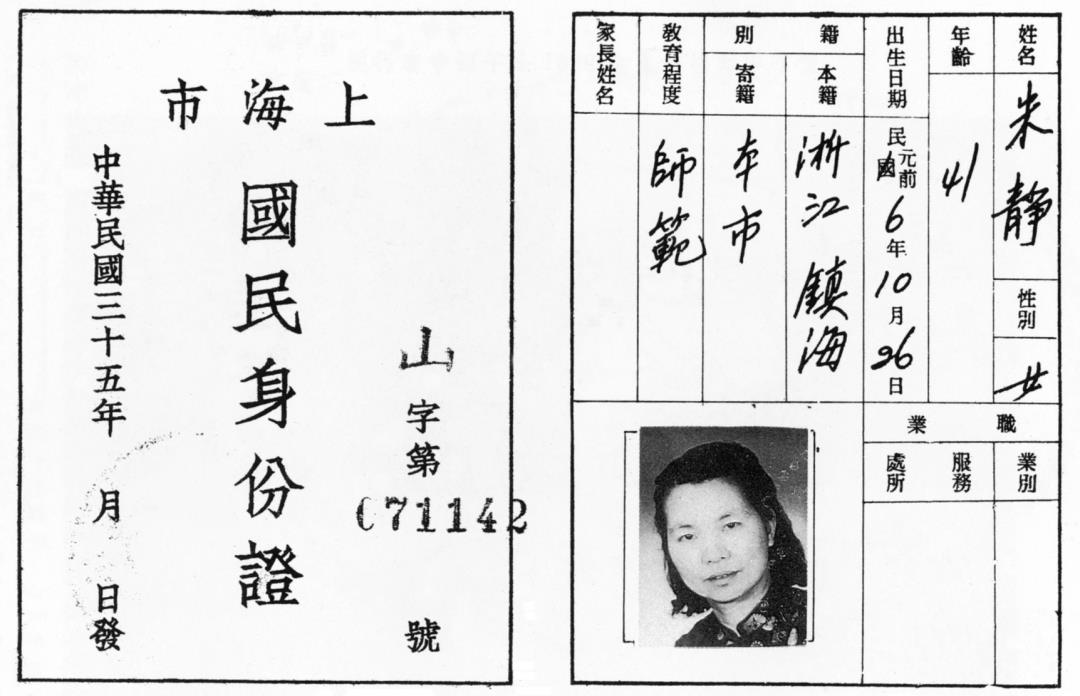 上海市
國民身份證
山字第071142號
中華民國三十五年 月 日發
姓名 朱靜
性別 女
年齡 41
出生日期 民國元前6年10月26日
籍別
本籍 浙江鎮海
寄籍 本市
教育程度 師範
家長姓名
職業
業別
服務處所